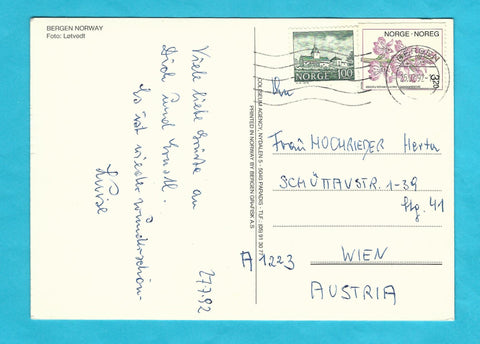 BERGEN NORWAY
Foto: Løtvedt
27.7.92
Viele liebe Grüße an
Dich und
Es ist wieder wunderschön.
Luise
COLIBEUM AGENCY, NYDALEN 5 - 5040 PARADIS - TLF.: (05) 91 30 77
PRINTED IN NORWAY BY BERGEN GRAFISK A.S
NORGE 100
NORGE · NOREG
An
Frau HOCHRIEDER Herta
SCHÜTTAUSTR. 1-39
Stg. 41
A 1223 WIEN
AUSTRIA